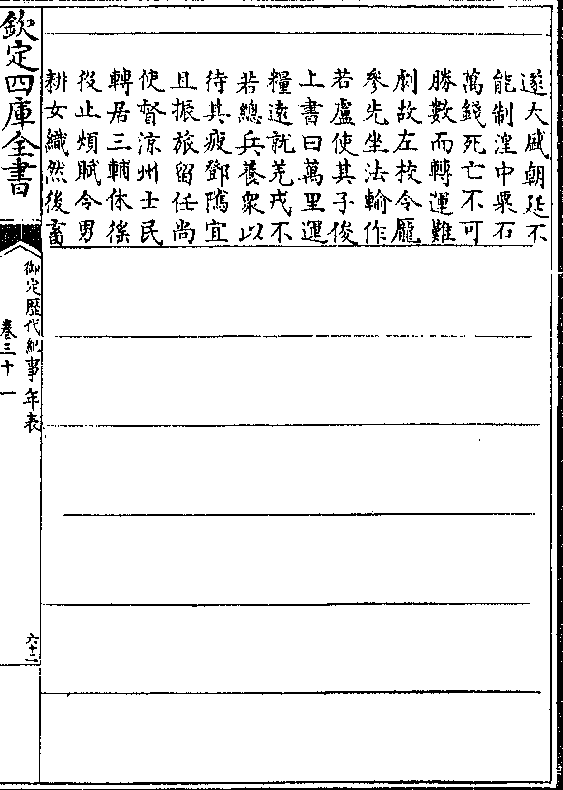 遂大盛朝廷不
能制湟中粟石
萬錢死亡不可
勝數而轉運難
劇故左校令龐
參先坐法輸作
若盧使其子俊
上書曰萬里運
糧遠就羌戎不
若總兵養衆以
待其疲鄧隲宜
且振旅留任尚
使督涼州士民
轉居三輔休徭
役止煩賦令男
耕女織然後畜
欽定四庫全書
御定歴代紀事年表
卷三十一
六十二